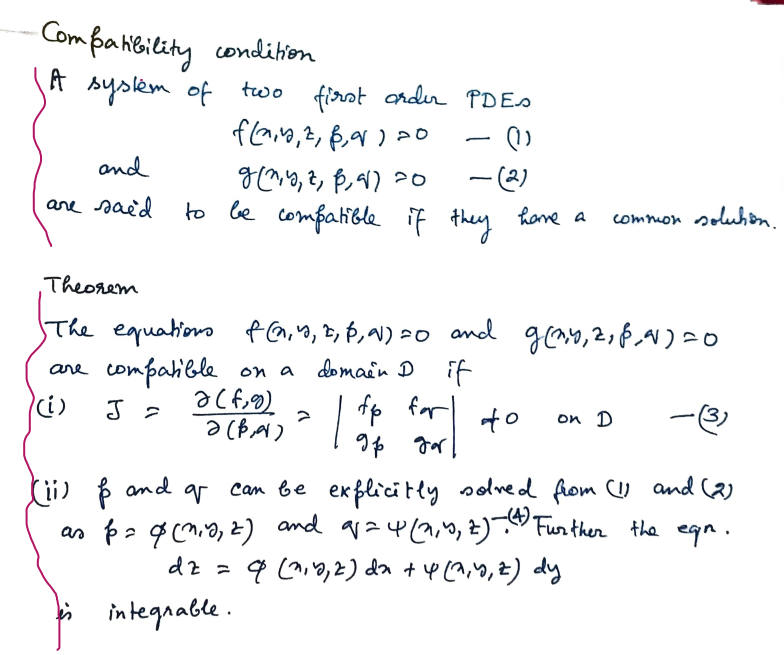 Compatibility condition
A system of two first order PDEs
f(x, y, z, p, q) = 0 — (1)
and g(x, y, z, p, q) = 0 — (2)
are said to be compatible if they have a common solution.
Theorem
The equations f(x, y, z, p, q) = 0 and g(x, y, z, p, q) = 0
are compatible on a domain D if
(i) J = ∂(f, g) / ∂(p, q) = | fp fq ; gp gq | ≠ 0 on D — (3)
(ii) p and q can be explicitly solved from (1) and (2)
as p = φ(x, y, z) and q = ψ(x, y, z) —(4). Further the eqn.
dz = φ(x, y, z) dx + ψ(x, y, z) dy
is integrable.